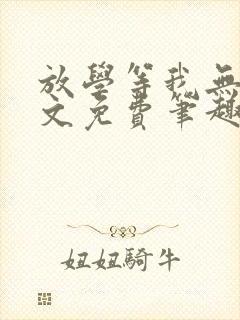 放學等我無
文免費筆趣
妞妞騎牛